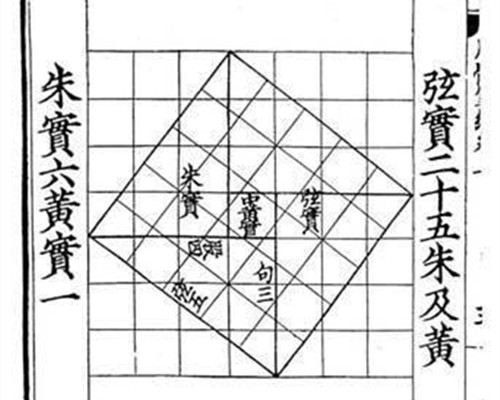 弦實二十五朱及黃
弦實
中黃實
朱實
句三
股四
弦五
朱實六黃實一